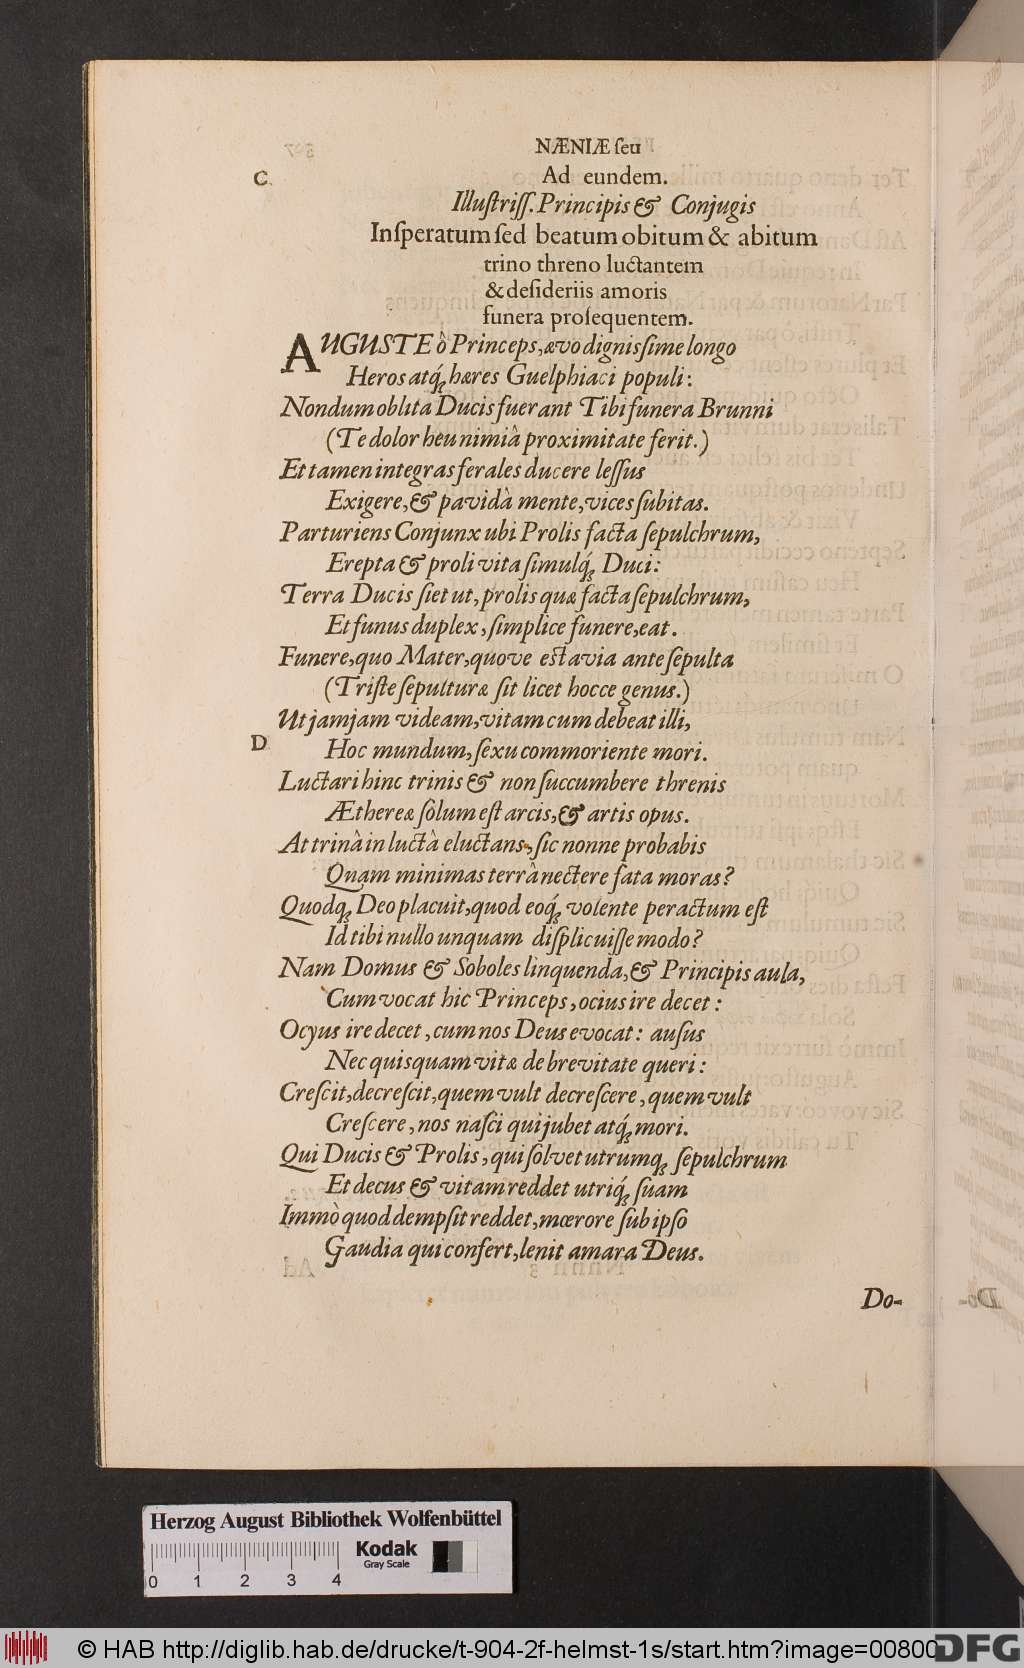 NÆNIÆ ſeu
C.
Ad eundem.
Illuſtriſſ. Principis & Conjugis
Inſperatum ſed beatum obitum & abitum
trino threno luctantem
& deſideriis amoris
funera proſequentem.
AUGUSTE ô Princeps, ævo digniſſime longo
Heros atq́; hæres Guelphiaci populi:
Nondum oblita Ducis fuerant Tibi funera Brunni
(Te dolor heu nimiâ proximitate ferit.)
Et tamen integras ferales ducere leſſus
Exigere, & pavidâ mente, vices ſubitas.
Parturiens Conjunx ubi Prolis facta ſepulchrum,
Erepta & proli vita ſimulq́; Duci:
Terra Ducis fiet ut, prolis quæ facta ſepulchrum,
Et funus duplex, ſimplice funere, eat.
Funere, quo Mater, quove eſt avia ante ſepulta
(Triſte ſepulturæ ſit licet hocce genus.)
Ut jamjam videam, vitam cum debeat illi,
D
Hoc mundum, ſexu commoriente mori.
Luctari hinc trinis & non ſuccumbere threnis
Æthereæ ſolum eſt arcis, & artis opus.
At trinâ in luctâ eluctans, ſic nonne probabis
Quam minimas terrâ nectere fata moras?
Quodq; Deo placuit, quod eoq́; volente peractum eſt
Id tibi nullo unquam diſplicuiſſe modo?
Nam Domus & Soboles linquenda, & Principis aula,
Cum vocat hic Princeps, ocius ire decet:
Ocyus ire decet, cum nos Deus evocat: auſus
Nec quisquam vitæ de brevitate queri:
Creſcit, decreſcit, quem vult decreſcere, quem vult
Creſcere, nos naſci qui jubet atq́; mori.
Qui Ducis & Prolis, qui ſolvet utrumq; ſepulchrum
Et decus & vitam reddet utriq́; ſuam
Immò quod dempſit reddet, mœrore ſub ipſo
Gaudia qui confert, lenit amara Deus.
Do-
Herzog August Bibliothek Wolfenbüttel
Kodak
Gray Scale
0 1 2 3 4
© HAB http://diglib.hab.de/drucke/t-904-2f-helmst-1s/start.htm?image=00800
DFG